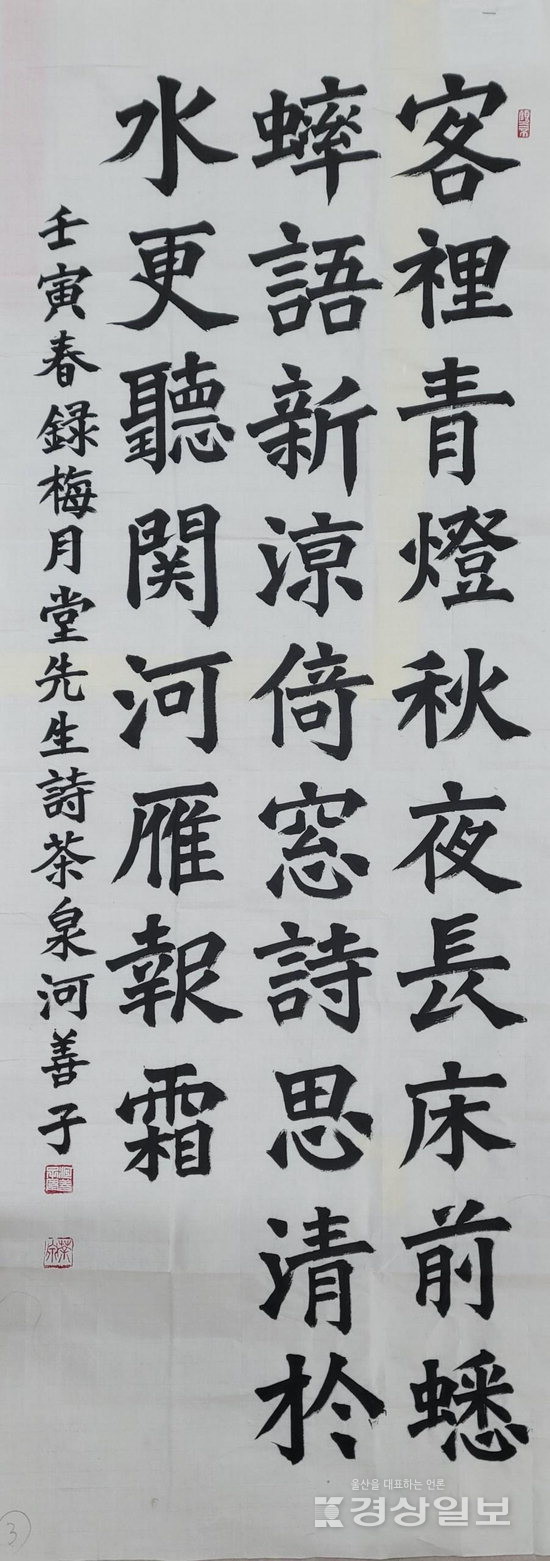 客裡青燈秋夜長床前蟋
蟀語新涼倚窓詩思清於
水更聽関河雁報霜
壬寅春録梅月堂先生詩茶泉河善子
울산을 대표하는 언론
경상일보
3